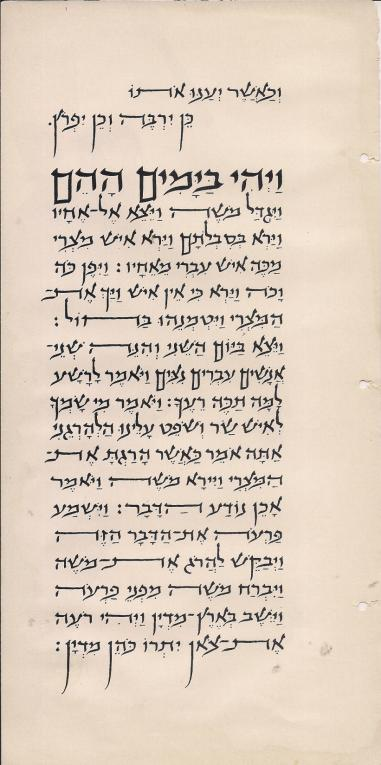 וְכַאֲשֶׁר יְעַנּוּ אֹתוֹ
כֵּן יִרְבֶּה וְכֵן יִפְרֹץ.
וַיְהִי בַּיָּמִים הָהֵם
וַיִּגְדַּל מֹשֶׁה וַיֵּצֵא אֶל־אֶחָיו
וַיַּרְא בְּסִבְלֹתָם וַיַּרְא אִישׁ מִצְרִי
מַכֶּה אִישׁ עִבְרִי מֵאֶחָיו: וַיִּפֶן כֹּה
וָכֹה וַיַּרְא כִּי אֵין אִישׁ וַיַּךְ אֶת־
הַמִּצְרִי וַיִּטְמְנֵהוּ בַּחוֹל:
וַיֵּצֵא בַּיּוֹם הַשֵּׁנִי וְהִנֵּה שְׁנֵי־
אֲנָשִׁים עִבְרִים נִצִּים וַיֹּאמֶר לָרָשָׁע
לָמָּה תַכֶּה רֵעֶךָ: וַיֹּאמֶר מִי שָׂמְךָ
לְאִישׁ שַׂר וְשֹׁפֵט עָלֵינוּ הַלְהָרְגֵנִי
אַתָּה אֹמֵר כַּאֲשֶׁר הָרַגְתָּ אֶת־
הַמִּצְרִי וַיִּירָא מֹשֶׁה וַיֹּאמַר
אָכֵן נוֹדַע הַדָּבָר: וַיִּשְׁמַע
פַּרְעֹה אֶת־הַדָּבָר הַזֶּה
וַיְבַקֵּשׁ לַהֲרֹג אֶת־מֹשֶׁה
וַיִּבְרַח מֹשֶׁה מִפְּנֵי פַרְעֹה
וַיֵּשֶׁב בְּאֶרֶץ־מִדְיָן וַיְהִי רֹעֶה
אֶת־צֹאן יִתְרוֹ כֹּהֵן מִדְיָן: